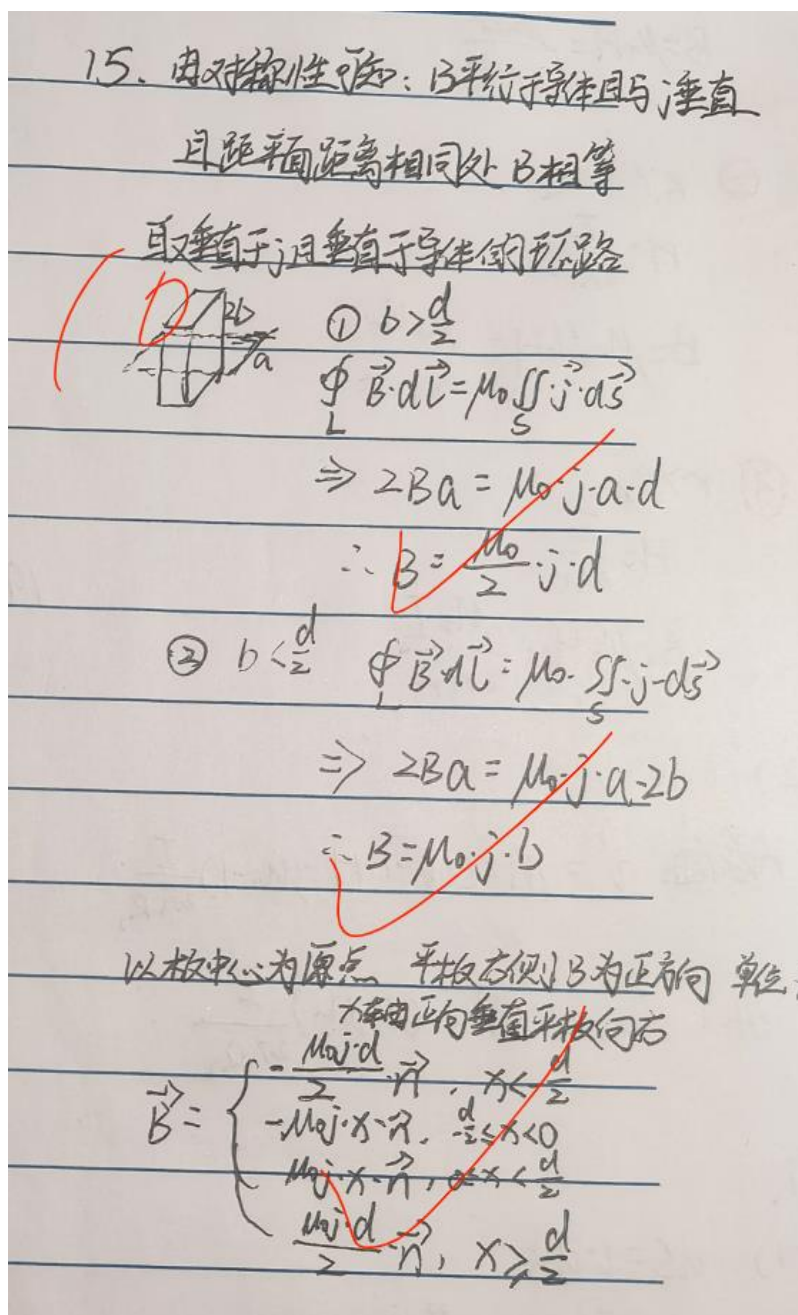 15. 由对称性可知：B平行于导体且与j垂直
且距平面距离相同处B相等
取垂直于j且垂直于导体的环路
2b
a
① b>d/2
∮_L B⃗·dl⃗=μ₀∬_S j⃗·ds⃗
⇒ 2Ba=μ₀·j·a·d
∴ B=μ₀/2·j·d
② b<d/2 ∮_L B⃗·dl⃗=μ₀·∬_S·j·ds⃗
⇒ 2Ba=μ₀·j·a·2b
∴ B=μ₀·j·b
以板中心为原点 平板右侧B为正方向 单位
x轴由正向垂直平板向右
B⃗= { -μ₀j·d/2·n⃗, x<-d/2
-μ₀j·x·n⃗, -d/2≤x<0
μ₀j·x·n⃗, 0≤x<d/2
μ₀j·d/2·n⃗, x≥d/2